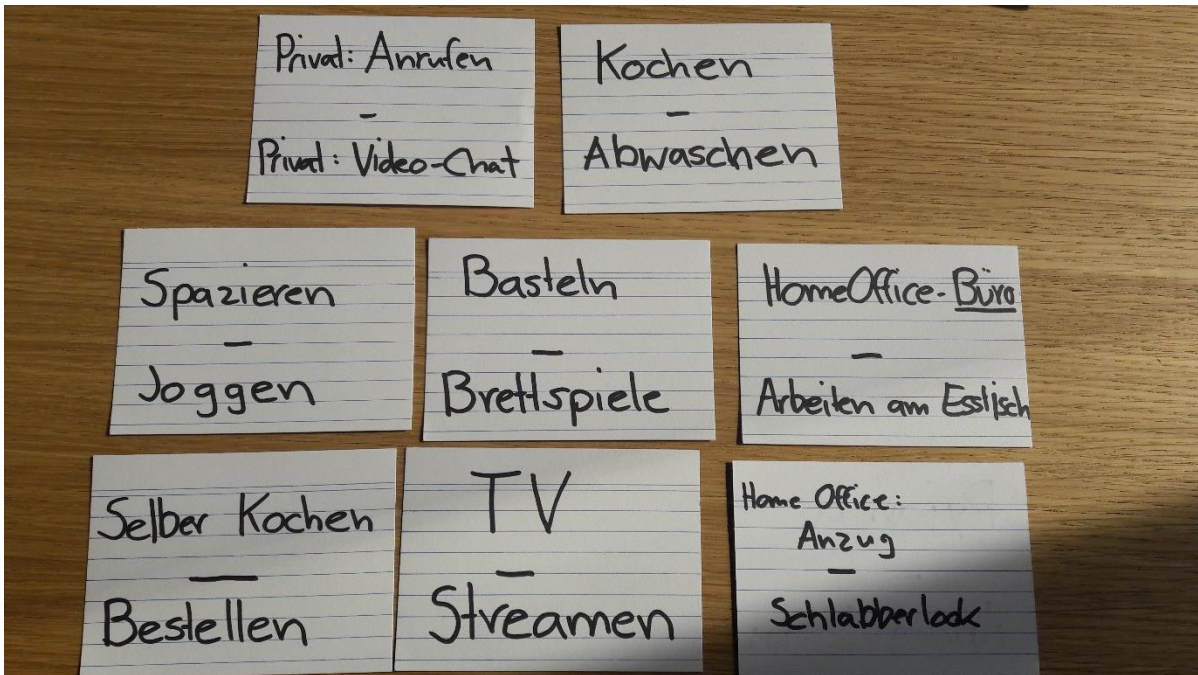 Privat: Anrufen
–
Privat: Video-Chat
Kochen
–
Abwaschen
Spazieren
–
Joggen
Basteln
–
Brettspiele
HomeOffice-Büro
–
Arbeiten am Esstisch
Selber Kochen
–
Bestellen
TV
–
Streamen
Home Office:
Anzug
–
Schlabberlook